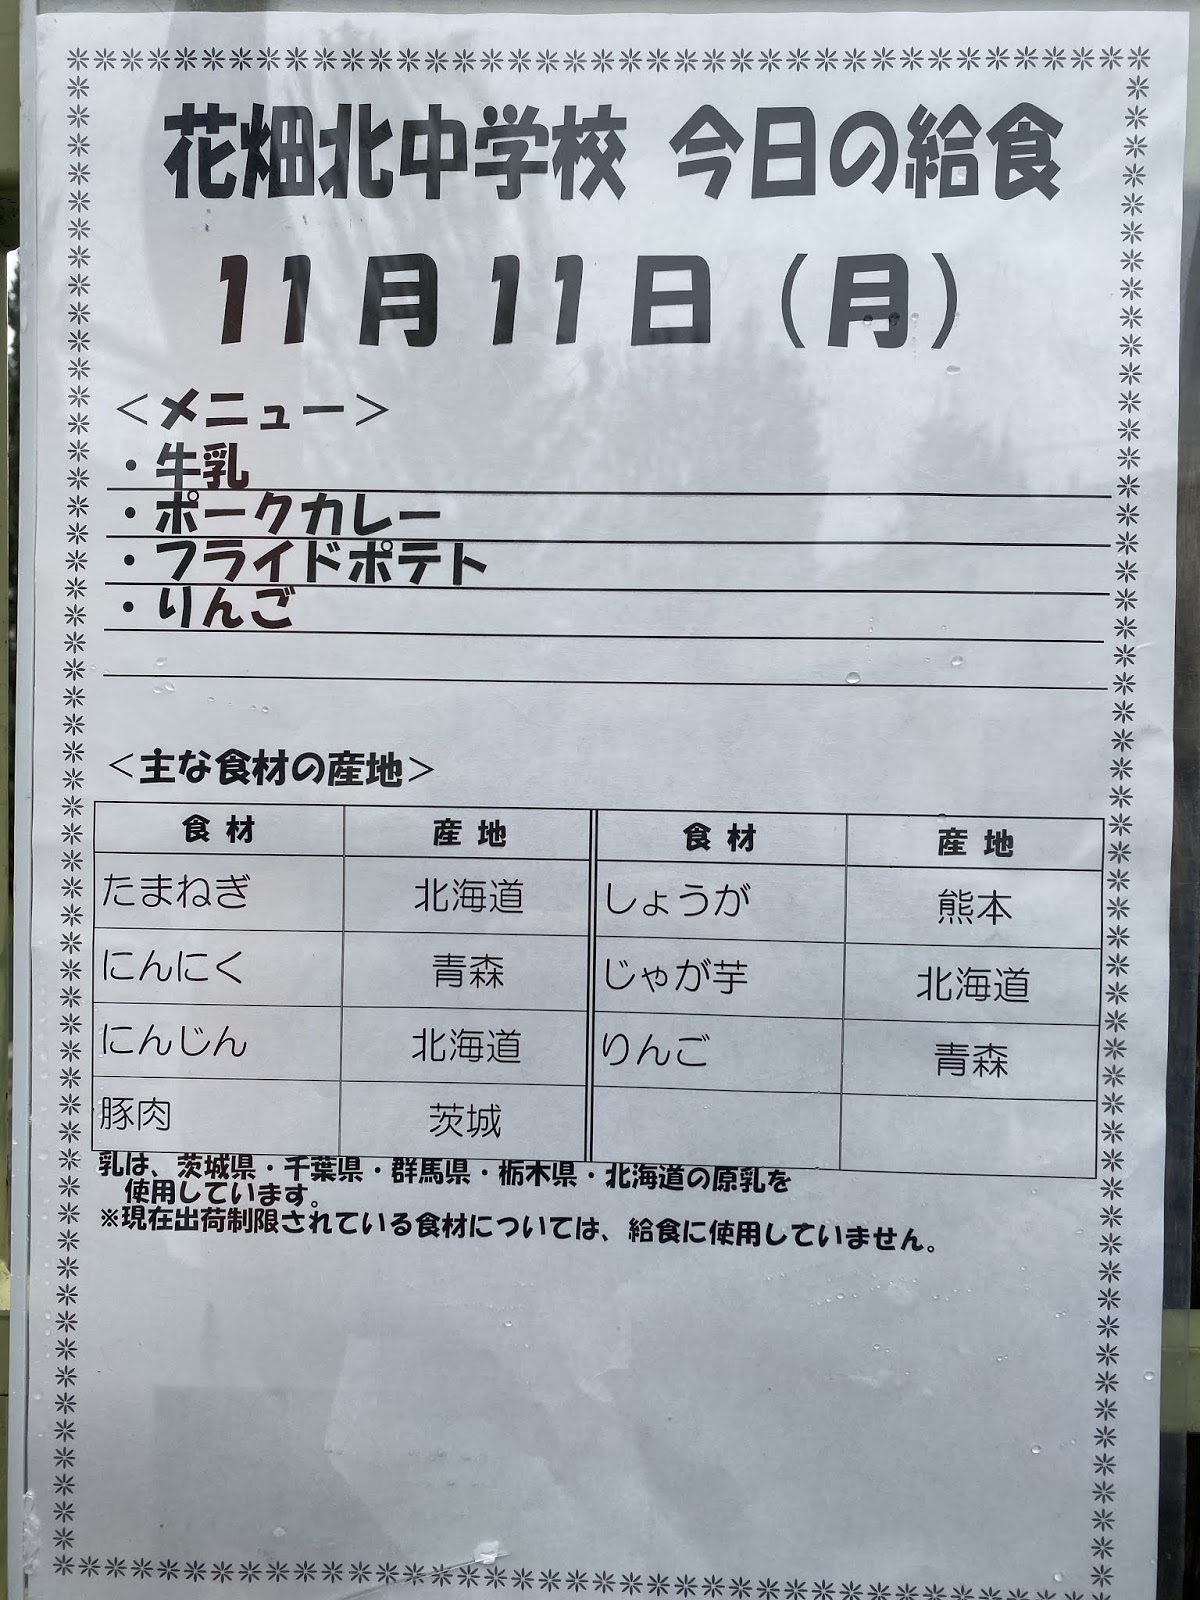 花畑北中学校 今日の給食
11月11日（月）
＜メニュー＞
・牛乳
・ポークカレー
・フライドポテト
・りんご
＜主な食材の産地＞
食材 産地 食材 産地
たまねぎ 北海道 しょうが 熊本
にんにく 青森 じゃが芋 北海道
にんじん 北海道 りんご 青森
豚肉 茨城
乳は、茨城県・千葉県・群馬県・栃木県・北海道の原乳を
使用しています。
※現在出荷制限されている食材については、給食に使用していません。